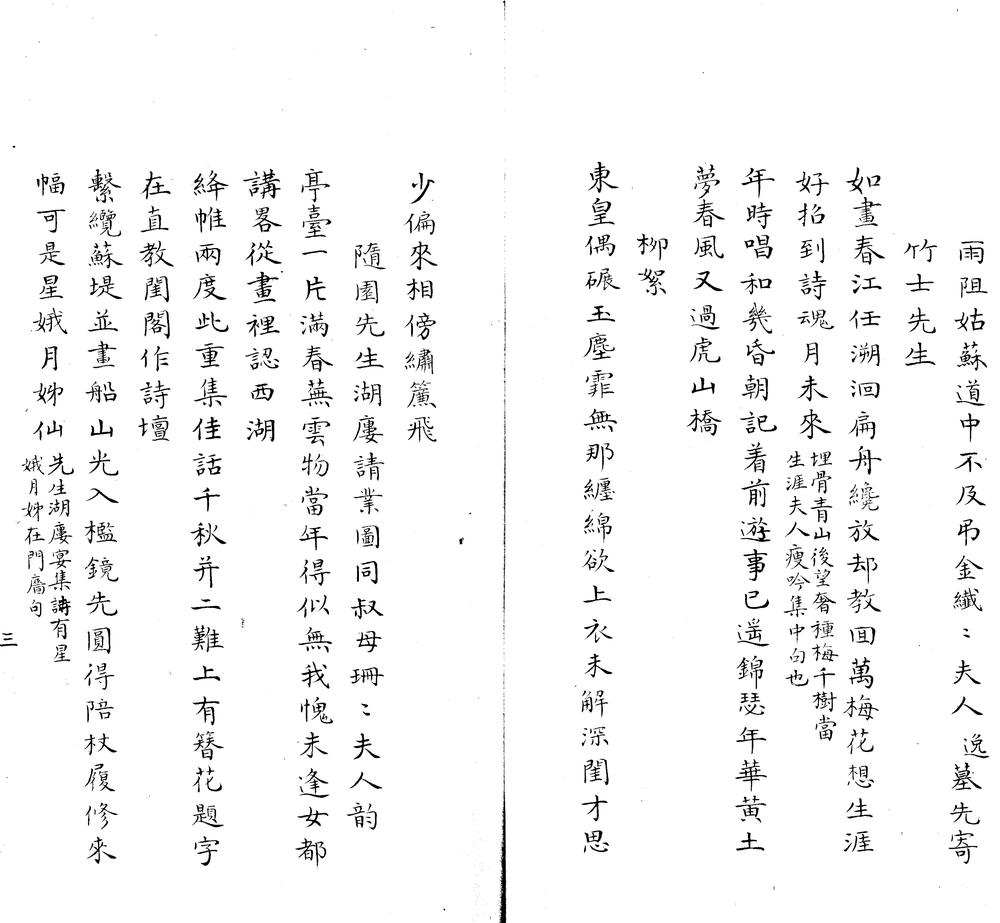 雨阻姑蘇道中不及弔金纖〻夫人逸墓先寄
竹士先生
如畫春江任溯洄扁舟纔放却教回萬梅花想生涯
好招到詩魂月未來埋骨青山後望奢種梅千樹當
生涯夫人瘦吟集中句也
年時唱和幾昏朝記着前遊事已遥錦瑟年華黃土
夢春風又過虎山橋
柳絮
東皇偶碾玉塵霏無那纏綿欲上衣未解深閨才思
少偏來相傍繡簾飛
隨園先生湖廔請業圖同叔母珊〻夫人韵
亭臺一片滿春蕪雲物當年得似無我愧未逢女都
講畧從畫裡認西湖
絳帷兩度此重集佳話千秋并二難上有簪花題字
在直教閨閣作詩壇
繫纜蘇堤並畫船山光入檻鏡先圓得陪杖履修來
幅可是星娥月姊仙先生湖廔宴集詩有星
娥月姊在門廧句
三